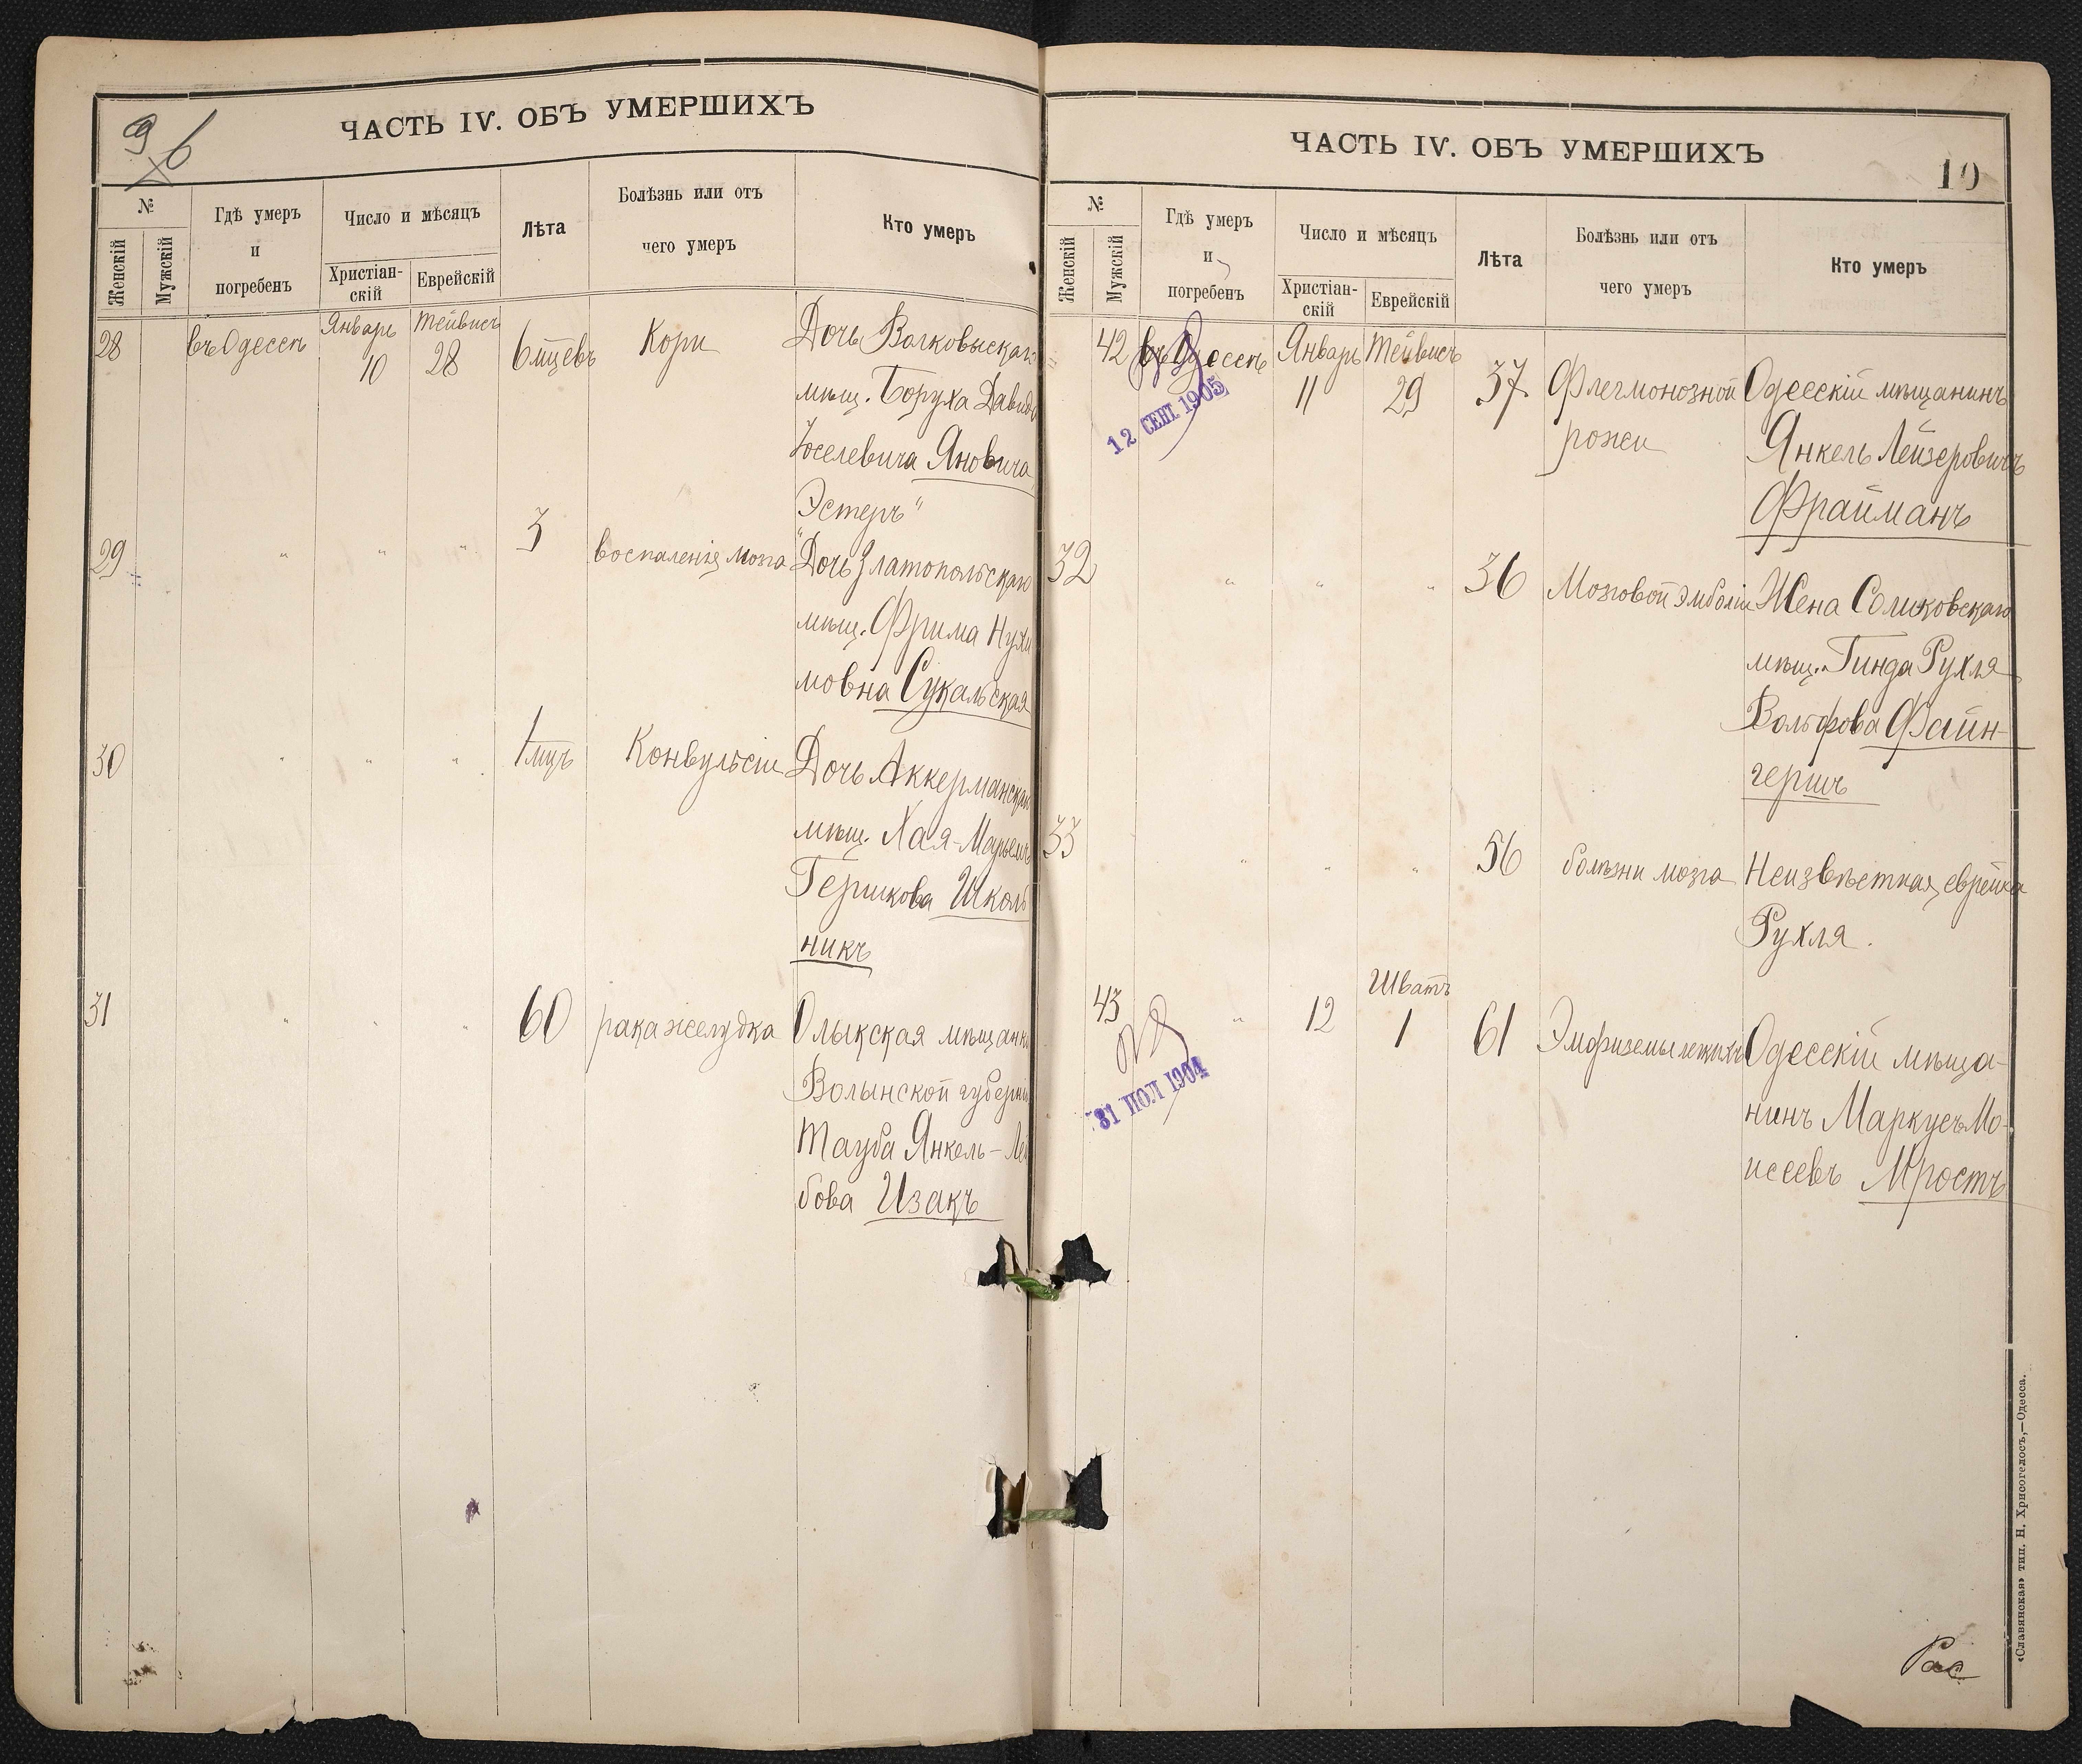 9/6
ЧАСТЬ IV. ОБЪ УМЕРШИХЪ
№
Женскій
Мужскій
Гдѣ умеръ
и
погребенъ
Число и мѣсяцъ
Христіан-
скій
Еврейскій
Лѣта
Болѣзнь или отъ
чего умеръ
Кто умеръ
28 въ Одессѣ Январь 10 Тейвисъ 28 6 мцевъ Кори Дочь Волковыскаго
мѣщ. Боруха Давида
Іоселевича Яновича,
„Эстеръ“
29 „ „ „ 3 воспаленія мозга Дочь Златопольскаго
мѣщ. Фрима Нухи
мовна Сукальская
30 „ „ „ 1 мцъ Конвульсіи Дочь Аккерманскаго
мѣщ. Хая-Марьемъ
Гершкова Школь
никъ
31 „ „ „ 60 рака желудка Олыкская мѣщанка
Волынской губерніи
Тауба Янкель-Лей
бова Изакъ
ЧАСТЬ IV. ОБЪ УМЕРШИХЪ
10
№
Женскій
Мужскій
Гдѣ умеръ
и
погребенъ
Число и мѣсяцъ
Христіан-
скій
Еврейскій
Лѣта
Болѣзнь или отъ
чего умеръ
Кто умеръ
42 въ Одессѣ Январь 11 Тейвисъ 29 37 Флегмонозной рожи Одесскій мѣщанинъ
12 СЕНТ 1905
Янкель Лейзеровичъ
Фрайманъ
32 „ „ „ 36 Мозговой эмболіи Жена Соликовскаго
мѣщ. Гинда Рухля
Вольфова Файн-
гершъ
33 „ „ „ 56 болѣзни мозга Неизвѣстная еврейка
Рухля.
43 „ 12 Шватъ 1 61 Эмфиземы легкихъ Одесскій мѣща-
31 ІЮЛ 1904
нинъ Маркусъ Мо-
исеевъ Мростъ
Рас
«Славянская» тип. Н. Хрисогелосъ,—Одесса.